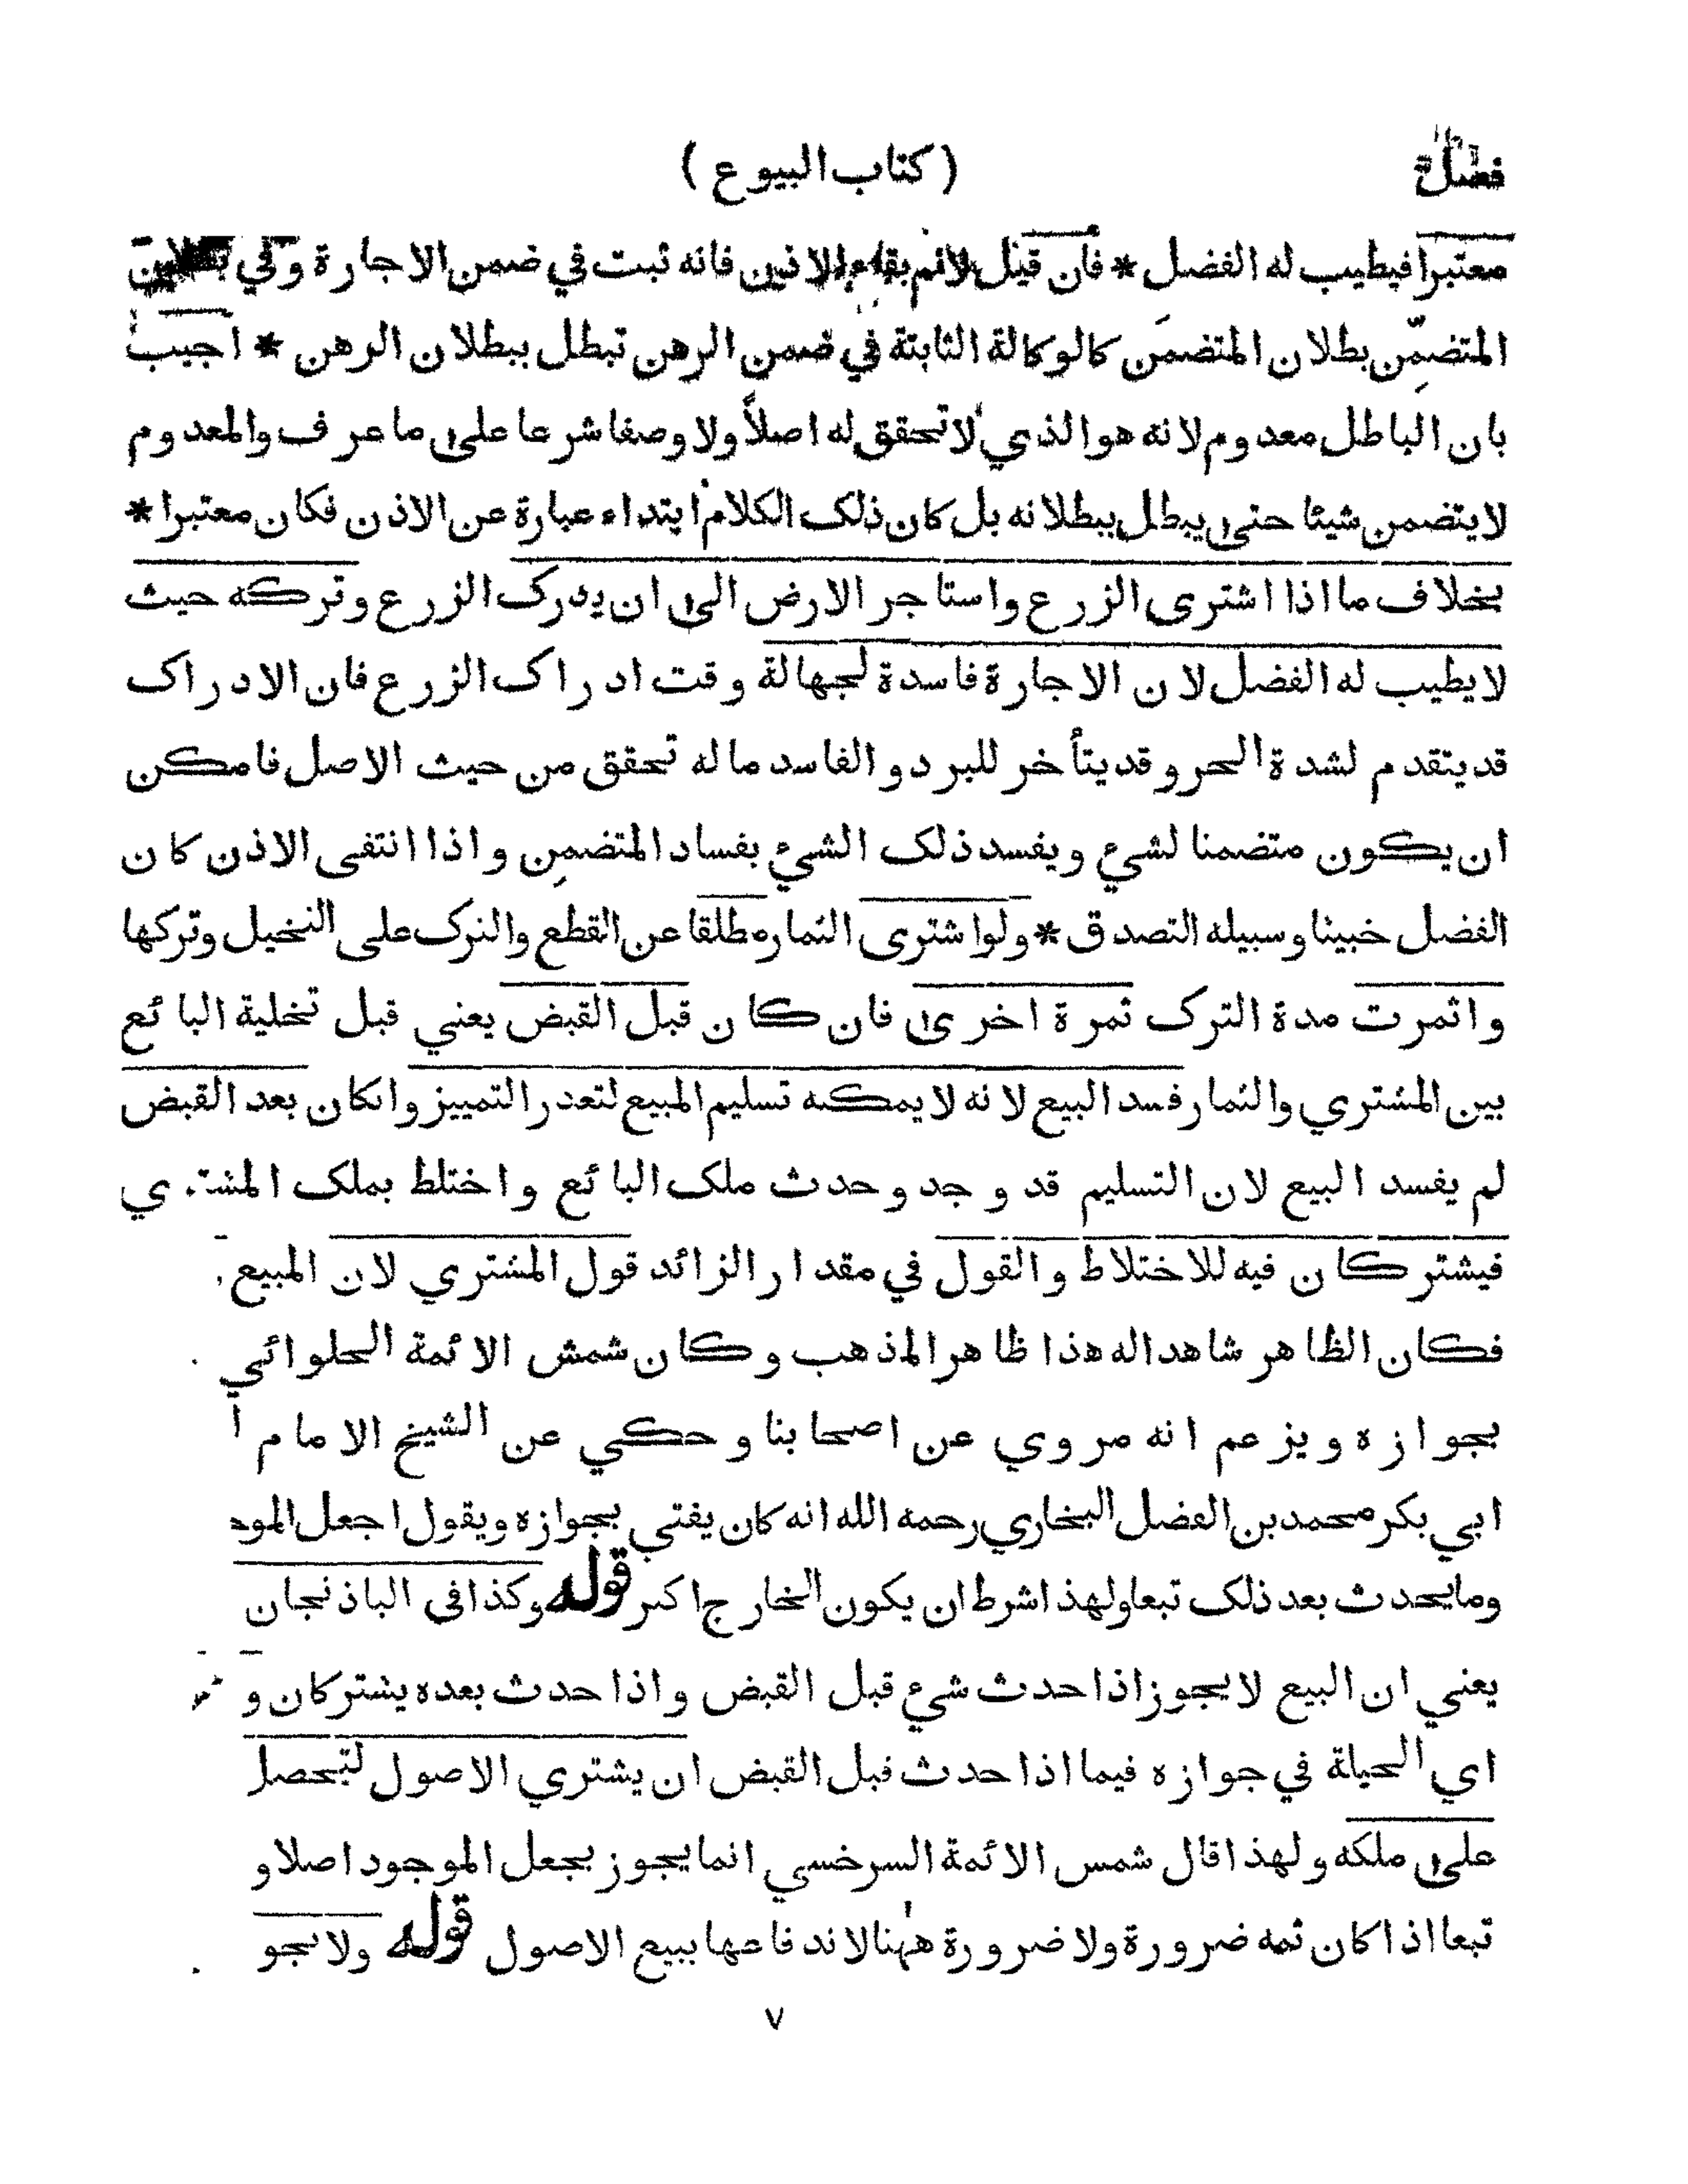 فصل
( كتاب البيوع )
معتبرا فيطيب له الفضل * فان قيل لانم بقاء الاذن فانه ثبت في ضمن الاجارة وفي بطلان
المتضمِّن بطلان المتضمَن كالوكالة الثابتة في ضمن الرهن تبطل ببطلان الرهن * اجيب
بان الباطل معدوم لانه هو الذي لا تحقق له اصلاً ولا وصفا شرعا على ما عرف والمعدوم
لا يتضمن شيئا حتى يبطل ببطلانه بل كان ذلك الكلام ابتداء عبارة عن الاذن فكان معتبرا *
بخلاف ما اذا اشترى الزرع واستاجر الارض الى ان يدرك الزرع وتركه حيث
لا يطيب له الفضل لان الاجارة فاسدة لجهالة وقت ادراك الزرع فان الادراك
قد يتقدم لشدة الحر وقد يتأخر للبرد والفاسد ما له تحقق من حيث الاصل فامكن
ان يكون متضمنا لشيء ويفسد ذلك الشيء بفساد المتضمِن واذا انتفى الاذن كان
الفضل خبيثا وسبيله التصدق * ولو اشترى الثمار مطلقا عن القطع والترك على النخيل وتركها
واثمرت مدة الترك ثمرة اخرى فان كان قبل القبض يعني قبل تخلية البائع
بين المشتري والثمار فسد البيع لانه لا يمكنه تسليم المبيع لتعذر التمييز وانكان بعد القبض
لم يفسد البيع لان التسليم قد وجد وحدث ملك البائع واختلط بملك المشتري
فيشتركان فيه للاختلاط والقول في مقدار الزائد قول المشتري لان المبيع
فكان الظاهر شاهدا له هذا ظاهر المذهب وكان شمش الائمة الحلوائي
بجوازه ويزعم انه مروي عن اصحابنا وحكي عن الشيخ الامام
ابي بكر محمد بن الفضل البخاري رحمه الله انه كان يفتي بجوازه ويقول اجعل المو
وما يحدث بعد ذلك تبعا ولهذا شرط ان يكون الخارج اكثر قوله وكذا في الباذنجان
يعني ان البيع لا يجوز اذا حدث شيء قبل القبض واذا حدث بعده يشتركان و
اي الحيلة في جوازه فيما اذا حدث قبل القبض ان يشتري الاصول لتحصل
على ملكه ولهذا قال شمس الائمة السرخسي انما يجوز بجعل الموجود اصلا و
تبعا اذا كان ثمه ضرورة ولا ضرورة ههنا لاندفاعها ببيع الاصول قوله ولا يجو
٧